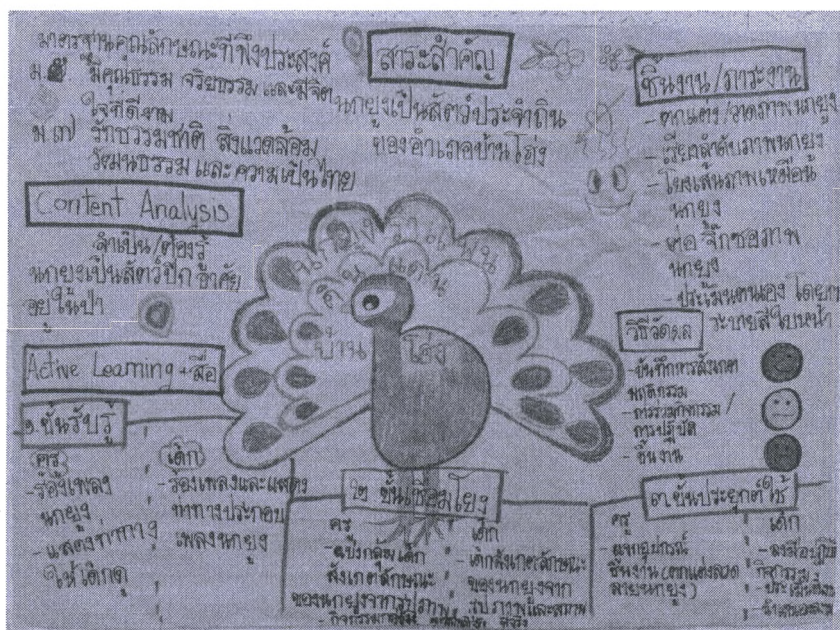 มาตรฐานคุณลักษณะที่พึงประสงค์
มีคุณธรรม จริยธรรม และมีจิต
ใจที่ดีงาม
ม.๗ รักธรรมชาติ สิ่งแวดล้อม
วัฒนธรรม และ ความเป็นไทย
สาระสำคัญ
นกยูงเป็นสัตว์ประจำถิ่น
ของอำเภอบ้านโฮ่ง
ชิ้นงาน/ภาระงาน
- ตกแต่ง/วาดภาพนกยูง
- เรียงลำดับภาพนกยูง
- โยงเส้นภาพเหมือน
นกยูง
- ต่อ จิ๊กซอภาพ
นกยูง
- ประเมินตนเอง โดยการ
ระบายสีใบหน้า
Content Analysis
จำเป็น/ต้องรู้
นกยูงเป็นสัตว์ปีก อาศัย
อยู่ในป่า
นกยูงรำแพน
ดินแดน
บ้าน โฮ่ง
วิธีวัดผล
- บันทึกการสังเกต
พฤติกรรม
- การร่วมกิจกรรม /
การปฏิบัติ
- ชิ้นงาน
Active Learning + สื่อ
๑. ขั้นรับรู้
ครู
- ร้องเพลง
นกยูง
- แสดงท่าทาง
ให้เด็กดู
เด็ก
- ร้องเพลงและแสดง
ท่าทางประกอบ
เพลงนกยูง
๒ ขั้นเชื่อมโยง
ครู
- แบ่งกลุ่มเด็ก
สังเกตลักษณะ
ของนกยูงจากรูปภาพ
เด็ก
- เด็กสังเกตลักษณะ
ของนกยูงจาก
รูปภาพและสถานที่
จริง
๓. ขั้นประยุกต์ใช้
ครู
- แจกอุปกรณ์
ชิ้นงาน (ตกแต่งลวด
ลายนกยูง)
เด็ก
- ลงมือปฏิบัติ
กิจกรรม